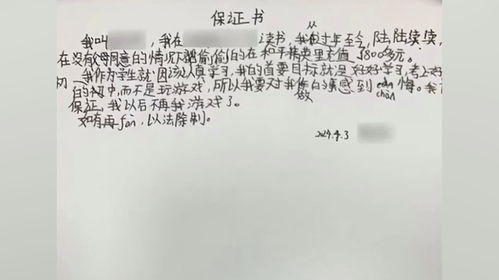 保证书
我叫 ，我在 读书，我从过年至今，陆陆续续，
在没有父母同意的情况下偷偷的在和平精英里充值 1800多元。
切 我作为学生就因该认真学习，我的首要目标就是好好学习，考上好
的初中，而不是玩游戏，所以我要对我做的 感到 chàn 悔。我
保证，我以后不再 游戏了。
如有再fàn，以法除制。
2024.4.3